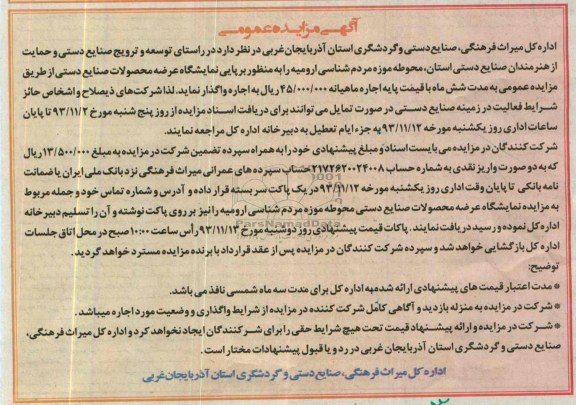 آگهی مزایده عمومی
اداره کل میراث فرهنگی، صنایع‌دستی و گردشگری استان آذربایجان‌غربی در نظر دارد در راستای توسعه و ترویج صنایع دستی و حمایت
از هنرمندان صنایع دستی استان، محوطه موزه مردم شناسی ارومیه را به منظور برپایی نمایشگاه عرضه محصولات صنایع دستی از طریق
مزایده عمومی به مدت شش ماه با قیمت پایه اجاره ماهیانه ۴۵/۰۰۰/۰۰۰ ریال به اجاره واگذار نماید. لذا شرکت‌های ذیصلاح و اشخاص حائز
شرایط فعالیت در زمینه صنایع دستی در صورت تمایل می‌توانند برای دریافت اسناد مزایده از روز پنج شنبه مورخ ۹۳/۱۱/۲ تا پایان
ساعات اداری روز یکشنبه مورخه ۹۳/۱۱/۱۲ به جزء ایام تعطیل به دبیرخانه اداره کل مراجعه نمایند.
شرکت کنندگان در مزایده می بایست اسناد و مبلغ پیشنهادی خود را به همراه سپرده تضمین شرکت در مزایده به مبلغ ۱۳/۵۰۰/۰۰۰ ریال
که به دو صورت واریز نقدی به شماره حساب ۲۱۷۲۶۲۰۰۲۴۰۰۸ حساب سپرده های عمرانی میراث فرهنگی نزد بانک ملی ایران یا ضمانت
نامه بانکی تا پایان وقت اداری روز یکشنبه مورخه ۹۳/۱۱/۱۲ در یک پاکت سر بسته قرار داده و آدرس و شماره تماس خود و جمله مربوط
به مزایده نمایشگاه عرضه محصولات صنایع دستی محوطه موزه مردم شناسی ارومیه را نیز بر روی پاکت نوشته و آن را تسلیم دبیرخانه
اداره کل نموده و رسید دریافت نمایند. پاکات قیمت پیشنهادی روز دوشنبه مورخ ۹۳/۱۱/۱۳ رأس ساعت ۱۰:۰۰ صبح در محل اتاق جلسات
اداره کل بازگشایی خواهد شد و سپرده شرکت کنندگان در مزایده پس از عقد قرارداد با برنده مزایده مسترد خواهد گردید.
توضیح:
* مدت اعتبار قیمت های پیشنهادی ارائه شده به اداره کل برای مدت سه ماه شمسی نافذ می باشد.
* شرکت در مزایده به منزله بازدید و آگاهی کامل شرکت کننده در مزایده از شرایط واگذاری و وضعیت مورد اجاره میباشد.
* شرکت در مزایده و ارائه پیشنهاد قیمت تحت هیچ شرایط حقی را برای شرکت‌کنندگان ایجاد نخواهد کرد و اداره کل میراث فرهنگی،
صنایع دستی و گردشگری استان آذربایجان غربی در رد و یا قبول پیشنهادات مختار است.
اداره کل میراث فرهنگی، صنایع‌دستی و گردشگری استان آذربایجان‌غربی